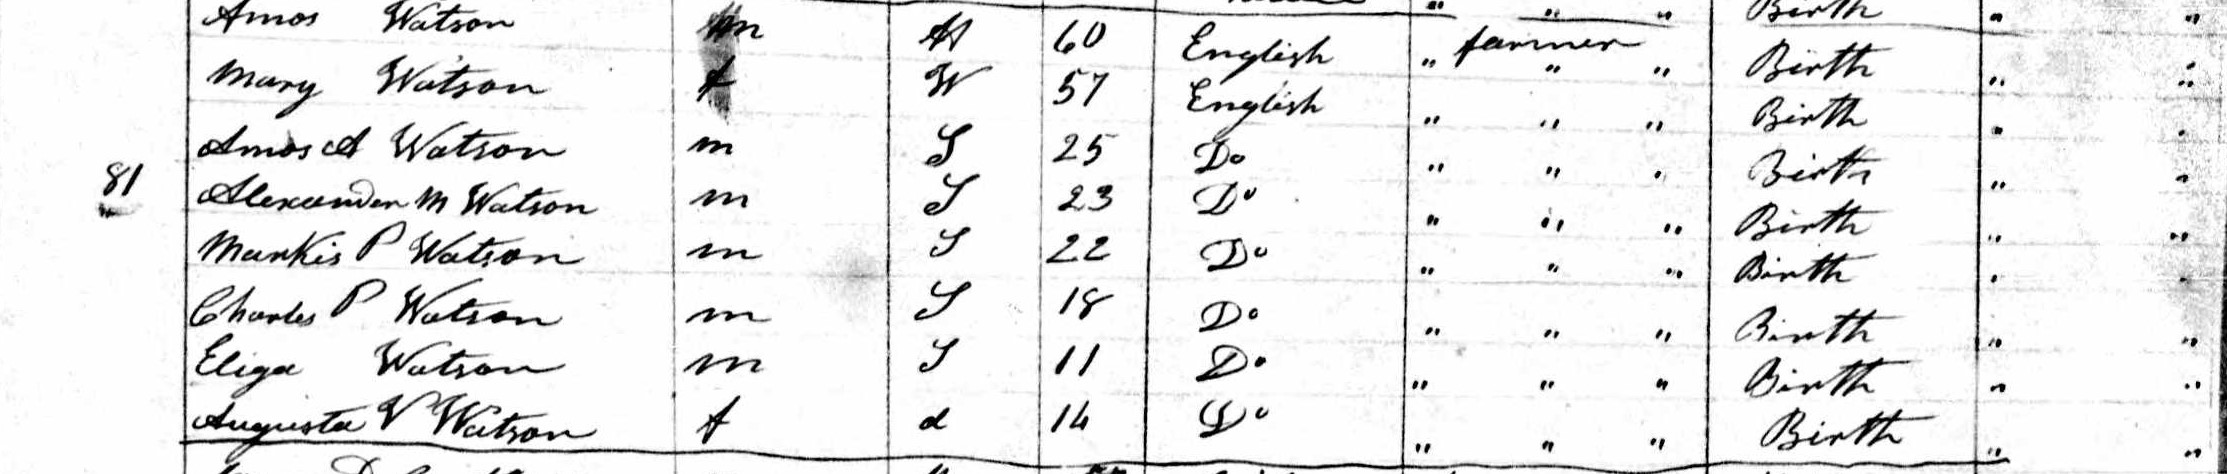 " " " Birth " "
Amos Watson m H 60 English " farmer " Birth " "
Mary Watson f W 57 English " " " Birth " "
Amos A Watson m S 25 Do " " " Birth " "
81 Alexander M Watson m S 23 Do " " " Birth " "
Markis P Watson m S 22 Do " " " Birth " "
Charles P Watson m S 18 Do " " " Birth " "
Eliga Watson m S 11 Do " " " Birth " "
Augusta V Watson f d 14 Do " " " Birth " "